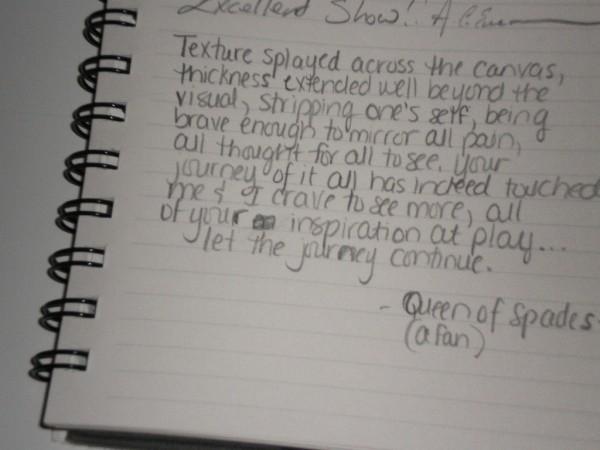 Excellent Show!
Texture splayed across the canvas,
thickness extended well beyond the
visual, stripping one's self, being
brave enough to mirror all pain,
all thought for all to see. Your
journey of it all has indeed touched
me & I crave to see more, all
of your inspiration at play...
let the journey continue.
- Queen of Spades
(a fan)